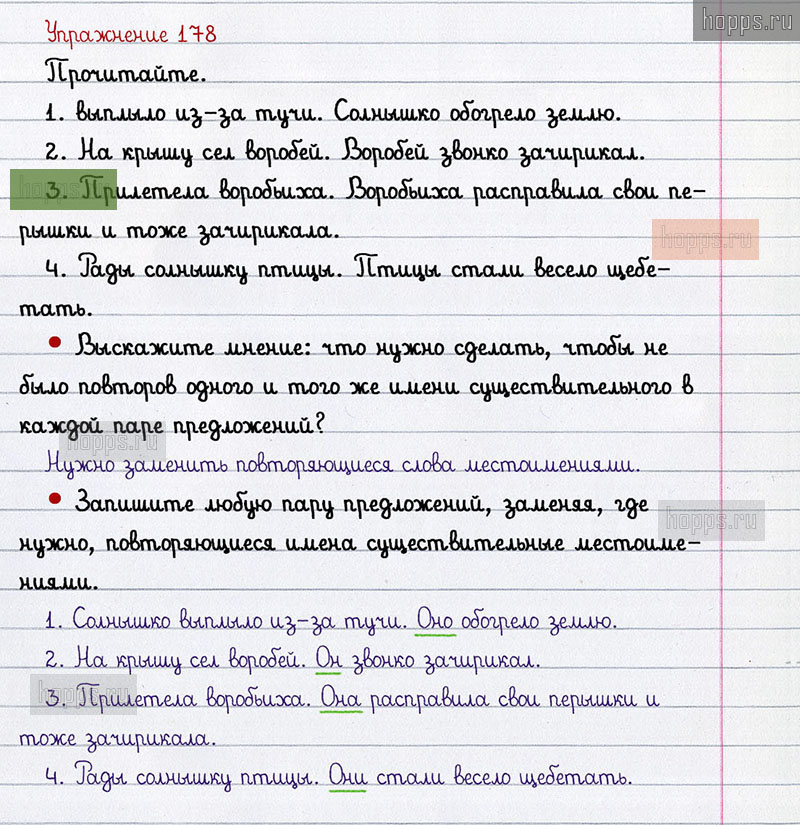 hopps.ru
Упражнение 178
Прочитайте.
1. выплыло из-за тучи. Солнышко обогрело землю.
2. На крышу сел воробей. Воробей звонко зачирикал.
hopps.ru
3. Прилетела воробьиха. Воробьиха расправила свои пе-
рышки и тоже зачирикала.
hopps.ru
4. Рады солнышку птицы. Птицы стали весело щебе-
тать.
• Выскажите мнение: что нужно сделать, чтобы не
было повторов одного и того же имени существительного в
каждой паре предложений?
hopps.ru
Нужно заменить повторяющиеся слова местоимениями.
• Запишите любую пару предложений, заменяя, где
hopps.ru
нужно, повторяющиеся имена существительные местоиме-
ниями.
1. Солнышко выплыло из-за тучи. Оно обогрело землю.
2. На крышу сел воробей. Он звонко зачирикал.
hopps.ru
3. Прилетела воробьиха. Она расправила свои перышки и
тоже зачирикала.
4. Рады солнышку птицы. Они стали весело щебетать.